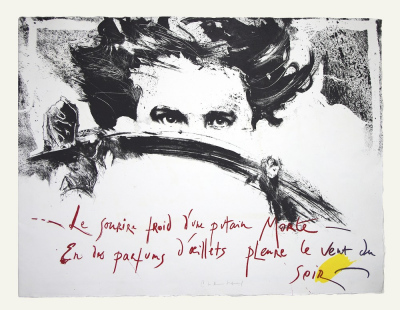 --- Le sourire froid d'une putain Morte —
En des parfums d'œillets pleure le vent du
soir —